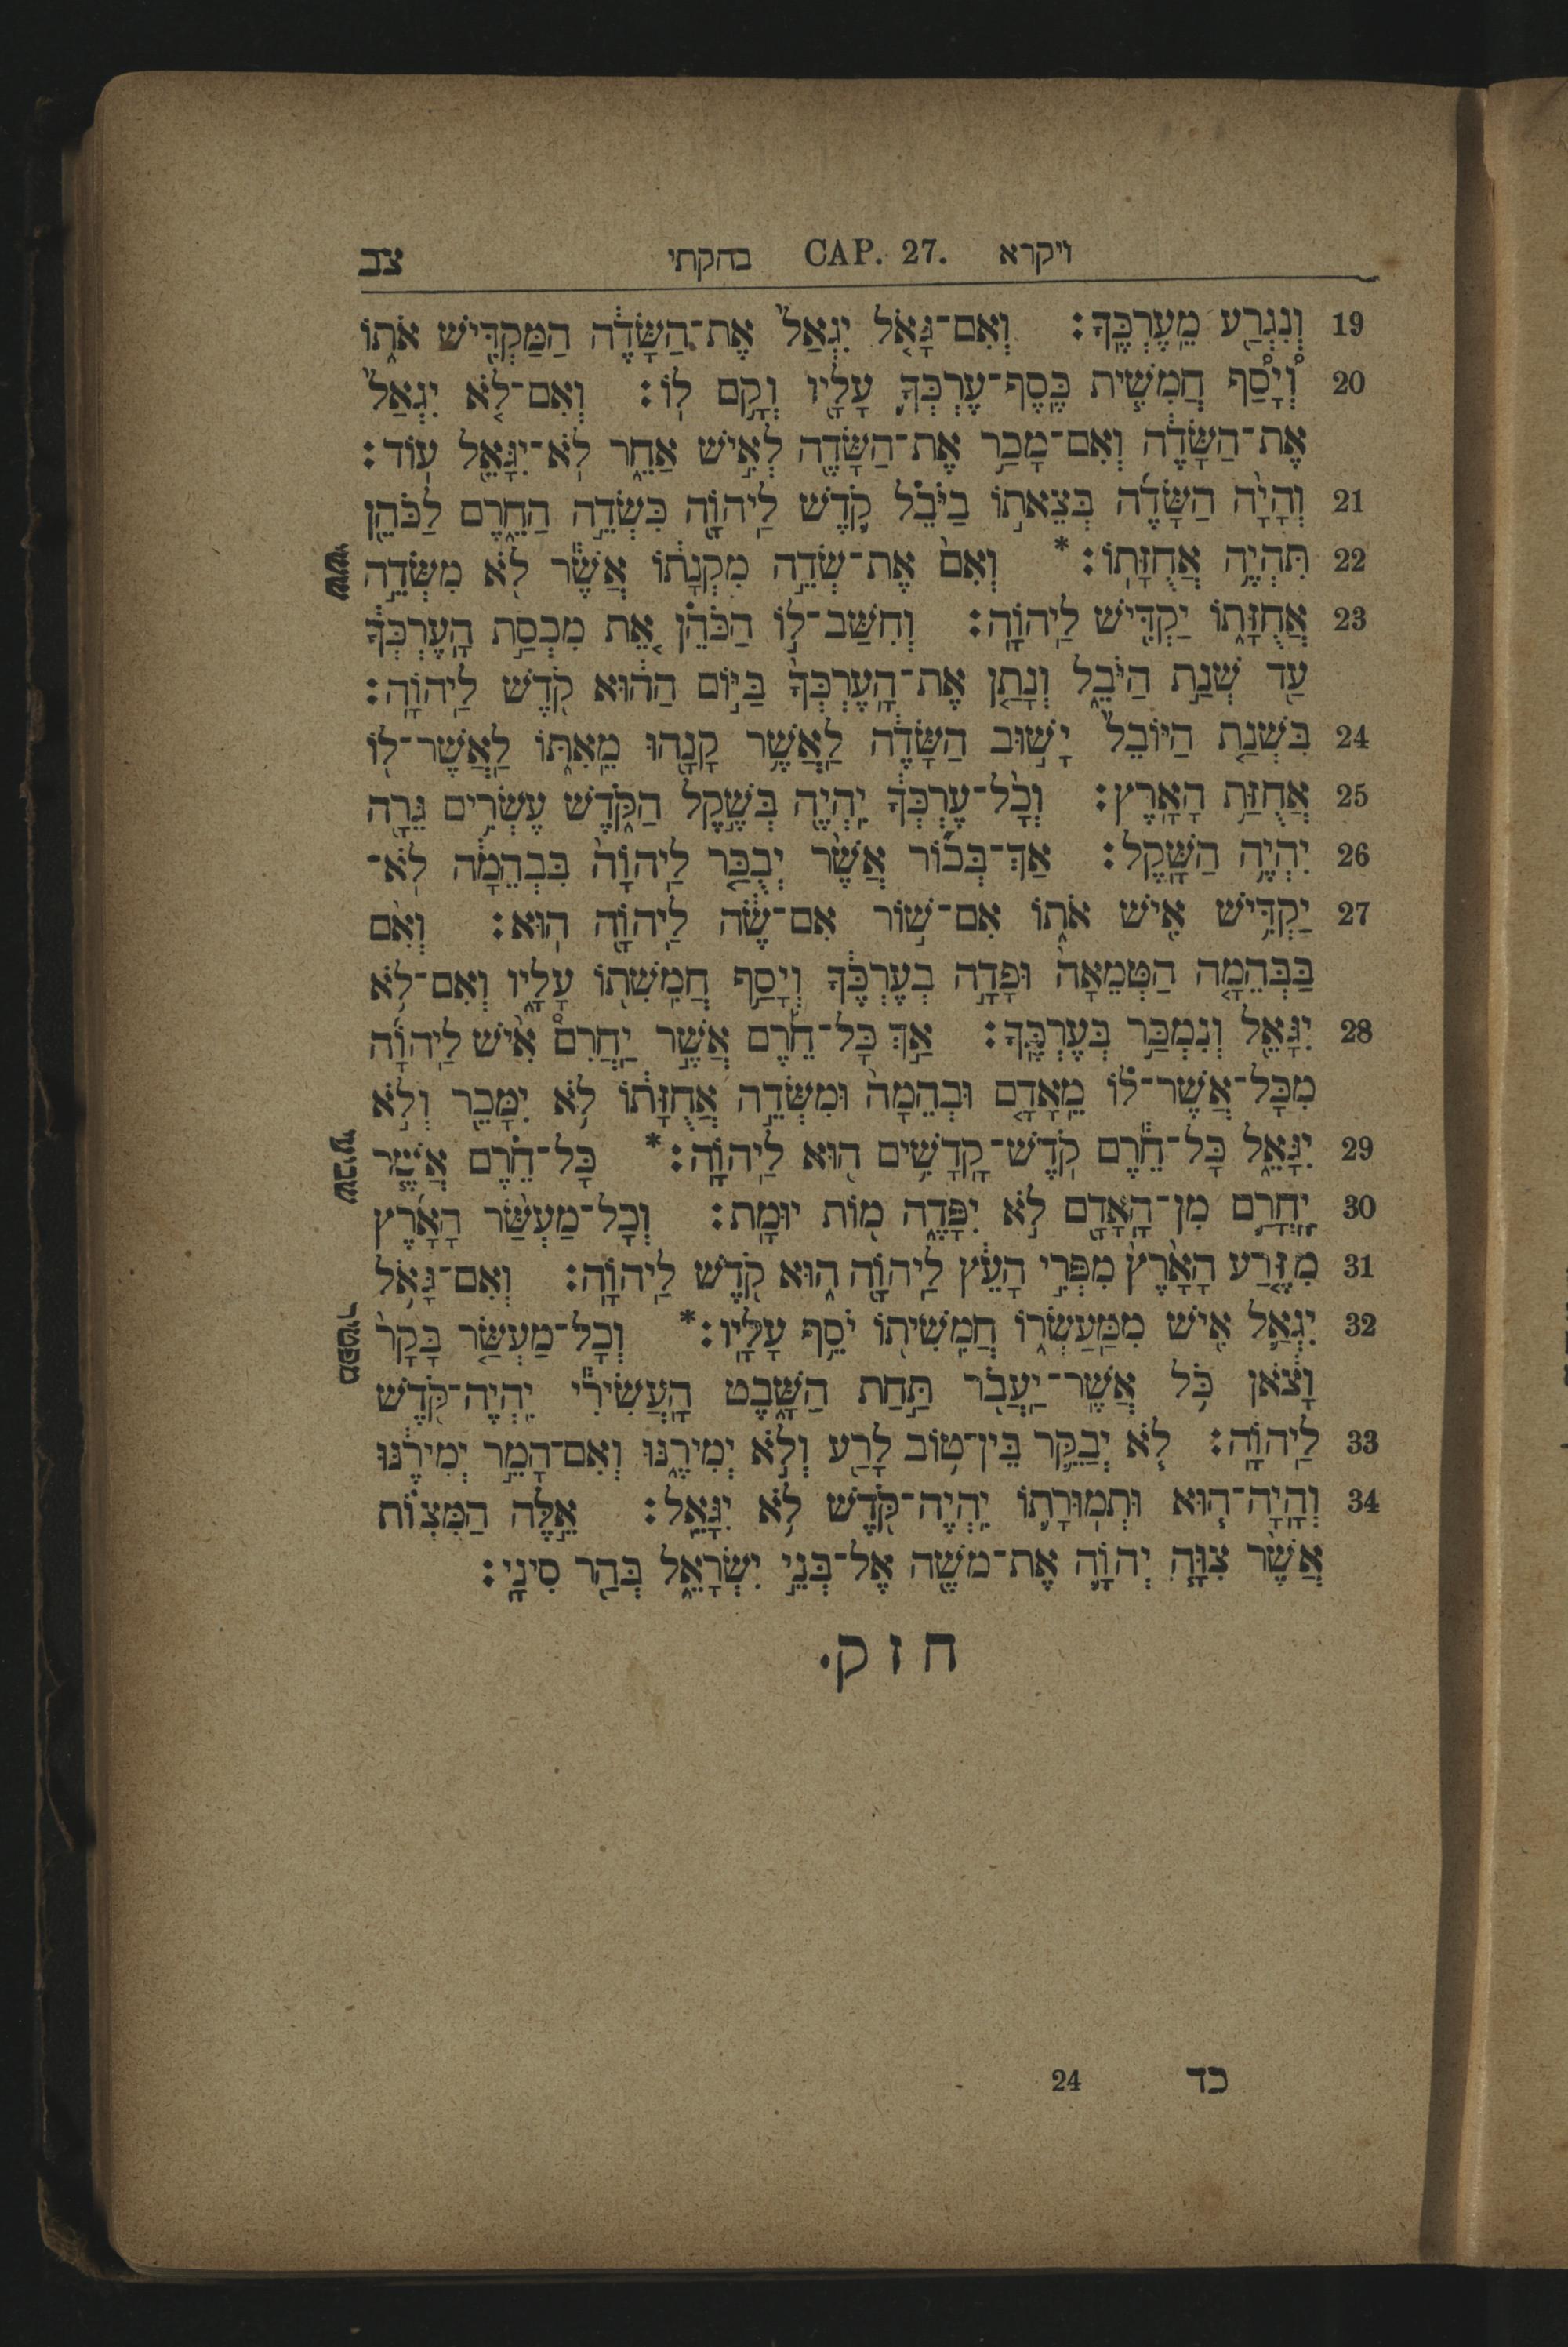 ויקרא CAP. 27. בחקתי צב
19 וְנִגְרַ֖ע מֵֽעֶרְכֶּֽךָ׃ וְאִם־גָּאֹ֤ל יִגְאַל֙ אֶת־הַשָּׂדֶ֔ה הַמַּקְדִּ֖ישׁ אֹת֑וֹ
20 וְ֠יָסַ֠ף חֲמִשִׁ֧ית כֶּֽסֶף־עֶרְכְּךָ֛ עָלָ֖יו וְקָ֥ם לֽוֹ׃ וְאִם־לֹ֤א יִגְאַל֙
אֶת־הַשָּׂדֶ֔ה וְאִם־מָכַ֥ר אֶת־הַשָּׂדֶ֖ה לְאִ֣ישׁ אַחֵ֑ר לֹֽא־יִגָּאֵ֖ל עֽוֹד׃
21 וְהָיָ֨ה הַשָּׂדֶ֜ה בְּצֵאת֣וֹ בַיֹּבֵ֗ל קֹ֛דֶשׁ לַֽיהוָֹ֖ה כִּשְׂדֵ֣ה הַחֵ֑רֶם לַכֹּהֵ֖ן
22 תִּהְיֶ֥ה אֲחֻזָּתֽוֹ׃* וְאִם֙ אֶת־שְׂדֵ֣ה מִקְנָת֔וֹ אֲשֶׁ֕ר לֹ֖א מִשְּׂדֵ֣ה
ששי
23 אֲחֻזָּת֑וֹ יַקְדִּ֖ישׁ לַֽיהוָֹֽה׃ וְחִשַּׁב־ל֣וֹ הַכֹּהֵ֗ן אֵ֚ת מִכְסַ֣ת הָֽעֶרְכְּךָ֔
עַ֖ד שְׁנַ֣ת הַיֹּבֵ֑ל וְנָתַ֤ן אֶת־הָֽעֶרְכְּךָ֙ בַּיּ֣וֹם הַה֔וּא קֹ֖דֶשׁ לַֽיהוָֹֽה׃
24 בִּשְׁנַ֤ת הַיּוֹבֵל֙ יָשׁ֣וּב הַשָּׂדֶ֔ה לַֽאֲשֶׁ֥ר קָנָ֖הוּ מֵֽאִתּ֑וֹ לַֽאֲשֶׁר־ל֖וֹ
25 אֲחֻזַּ֥ת הָאָֽרֶץ׃ וְכָ֨ל־עֶרְכְּךָ֔ יִֽהְיֶ֖ה בְּשֶׁ֣קֶל הַקֹּ֑דֶשׁ עֶשְׂרִ֥ים גֵּרָ֖ה
26 יִהְיֶ֥ה הַשָּֽׁקֶל׃ אַךְ־בְּכ֞וֹר אֲשֶׁ֨ר יְבֻכַּ֤ר לַֽיהוָֹה֙ בִּבְהֵמָ֔ה לֹֽא־
27 יַקְדִּ֥ישׁ אִ֖ישׁ אֹת֑וֹ אִם־שׁ֣וֹר אִם־שֶׂ֔ה לַֽיהוָֹ֖ה הֽוּא׃ וְאִ֨ם
בַּבְּהֵמָ֤ה הַטְּמֵאָה֙ וּפָדָ֣ה בְעֶרְכֶּ֔ךָ וְיָסַ֥ף חֲמִֽשִׁת֖וֹ עָלָ֑יו וְאִם־לֹ֥א
28 יִגָּאֵ֖ל וְנִמְכַּ֥ר בְּעֶרְכֶּֽךָ׃ אַ֣ךְ כָּל־חֵ֡רֶם אֲשֶׁ֣ר יַֽחֲרִם֩ אִ֨ישׁ לַֽיהוָֹ֜ה
מִכָּל־אֲשֶׁר־ל֗וֹ מֵֽאָדָ֤ם וּבְהֵמָה֙ וּמִשְּׂדֵ֣ה אֲחֻזָּת֔וֹ לֹ֥א יִמָּכֵ֖ר וְלֹ֣א
29 יִגָּאֵ֑ל כָּל־חֵ֕רֶם קֹֽדֶשׁ־קָֽדָשִׁ֥ים ה֖וּא לַֽיהוָֹֽה׃* כָּל־חֵ֗רֶם אֲשֶׁ֧ר
שביעי
30 יָֽחֳרַ֛ם מִן־הָֽאָדָ֖ם לֹ֣א יִפָּדֶ֑ה מ֖וֹת יוּמָֽת׃ וְכָל־מַעְשַׂ֨ר הָאָ֜רֶץ
31 מִזֶּ֤רַע הָאָ֨רֶץ֙ מִפְּרִ֣י הָעֵ֔ץ לַֽיהוָֹ֖ה ה֑וּא קֹ֖דֶשׁ לַֽיהוָֹֽה׃ וְאִם־גָּאֹ֥ל
32 יִגְאַ֛ל אִ֖ישׁ מִמַּֽעַשְׂר֑וֹ חֲמִֽשִׁית֖וֹ יֹסֵ֥ף עָלָֽיו׃* וְכָל־מַעְשַׂ֤ר בָּקָר֙
מפטיר
וָצֹ֔אן כֹּ֥ל אֲשֶֽׁר־יַֽעֲבֹ֖ר תַּ֣חַת הַשָּׁ֑בֶט הָֽעֲשִׂירִ֕י יִֽהְיֶה־קֹּ֖דֶשׁ
33 לַֽיהוָֹֽה׃ לֹ֧א יְבַקֵּ֛ר בֵּין־ט֥וֹב לָרַ֖ע וְלֹ֣א יְמִירֶ֑נּוּ וְאִם־הָמֵ֣ר יְמִירֶ֔נּוּ
34 וְהָֽיָה־ה֧וּא וּתְמֽוּרָת֛וֹ יִֽהְיֶה־קֹּ֖דֶשׁ לֹ֥א יִגָּאֵֽל׃ אֵ֣לֶּה הַמִּצְוֹ֗ת
אֲשֶׁ֨ר צִוָּ֧ה יְהוָֹ֛ה אֶת־מֹשֶׁ֖ה אֶל־בְּנֵ֣י יִשְׂרָאֵ֑ל בְּהַ֖ר סִינָֽי׃
חזק.
כד 24